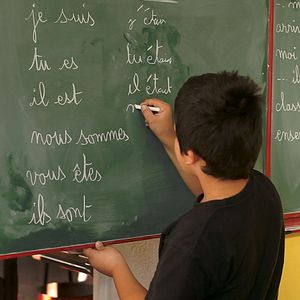 je suis
tu es
il est
nous sommes
vous êtes
ils sont
j'étais
tu étais
il était
n
mo
arri
moi
class
en